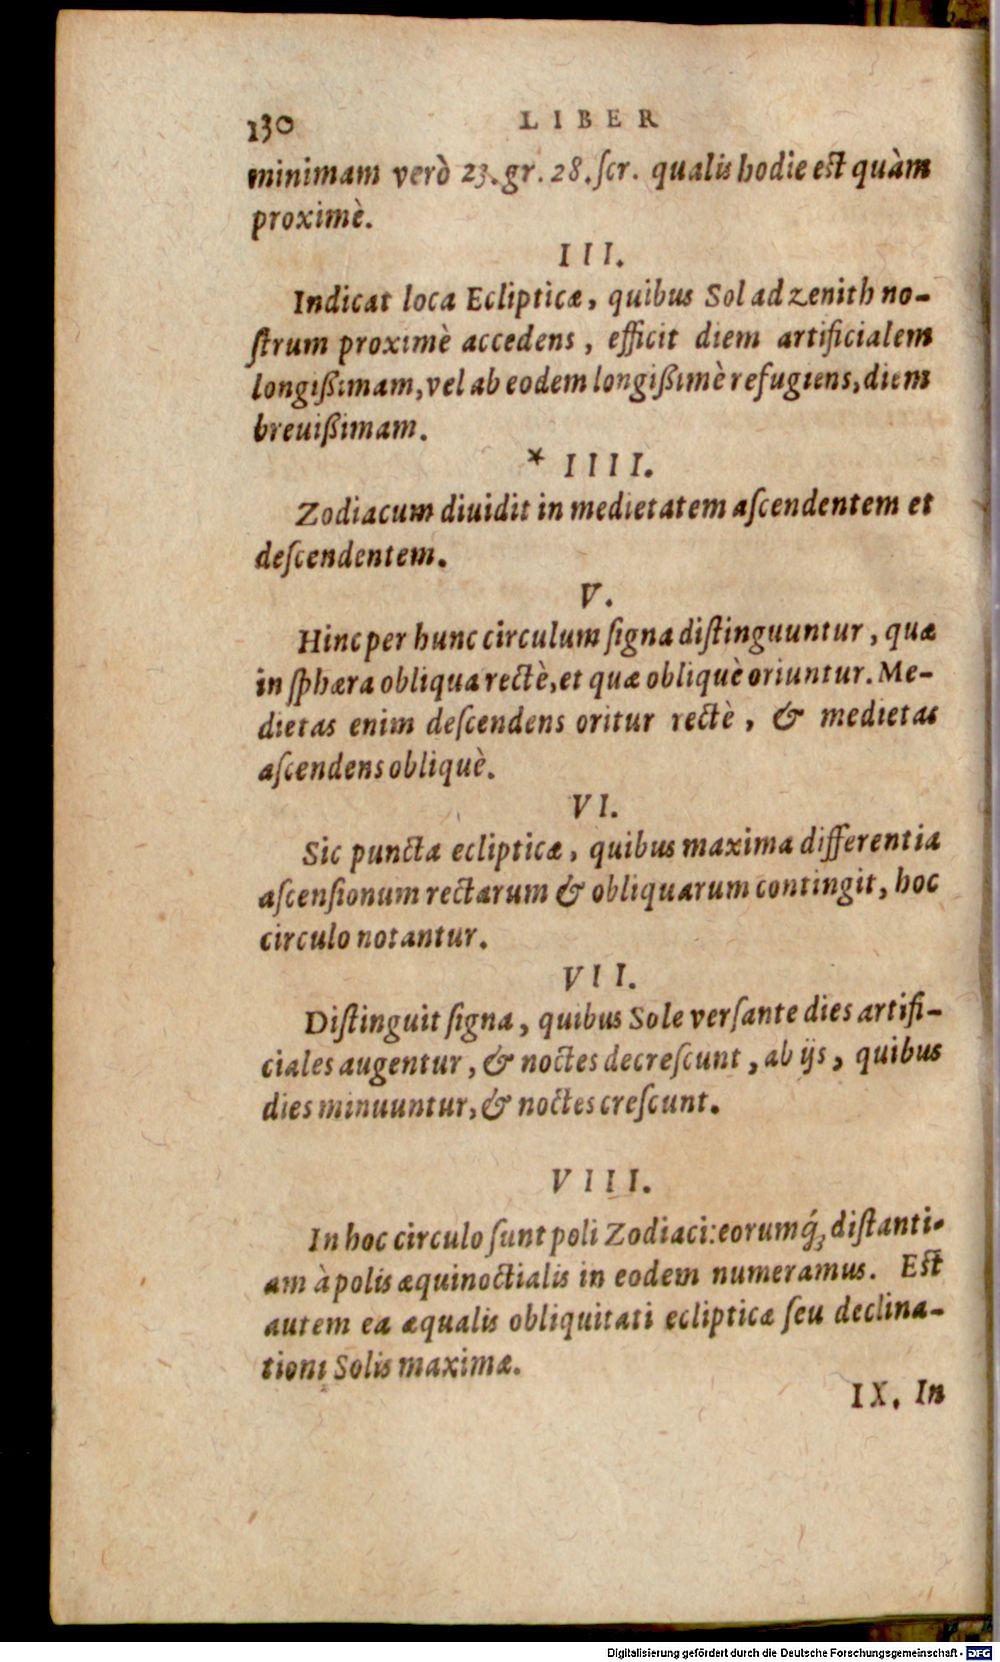 130 LIBER
minimam verò 23. gr. 28. ſcr. qualis hodie est quàm
proximè.
III.
Indicat loca Eclipticæ, quibus Sol ad zenith no-
ſtrum proximè accedens, efficit diem artificialem
longißimam, vel ab eodem longißimè refugiens, diem
breuißimam.
* IIII.
Zodiacum diuidit in medietatem aſcendentem et
deſcendentem.
V.
Hinc per hunc circulum ſigna diſtinguuntur, quæ
in ſphæra obliqua rectè, et quæ obliquè oriuntur. Me-
dietas enim deſcendens oritur rectè, & medietas
aſcendens obliquè.
VI.
Sic puncta eclipticæ, quibus maxima differentia
aſcenſionum rectarum & obliquarum contingit, hoc
circulo notantur.
VII.
Diſtinguit ſigna, quibus Sole verſante dies artifi-
ciales augentur, & noctes decreſcunt, ab ijs, quibus
dies minuuntur, & noctes creſcunt.
VIII.
In hoc circulo ſunt poli Zodiaci: eorumq́; diſtanti-
am à polis æquinoctialis in eodem numeramus. Est
autem ea æqualis obliquitati eclipticæ ſeu declina-
tioni Solis maximæ.
IX. In
Digitalisierung gefördert durch die Deutsche Forschungsgemeinschaft - DFG